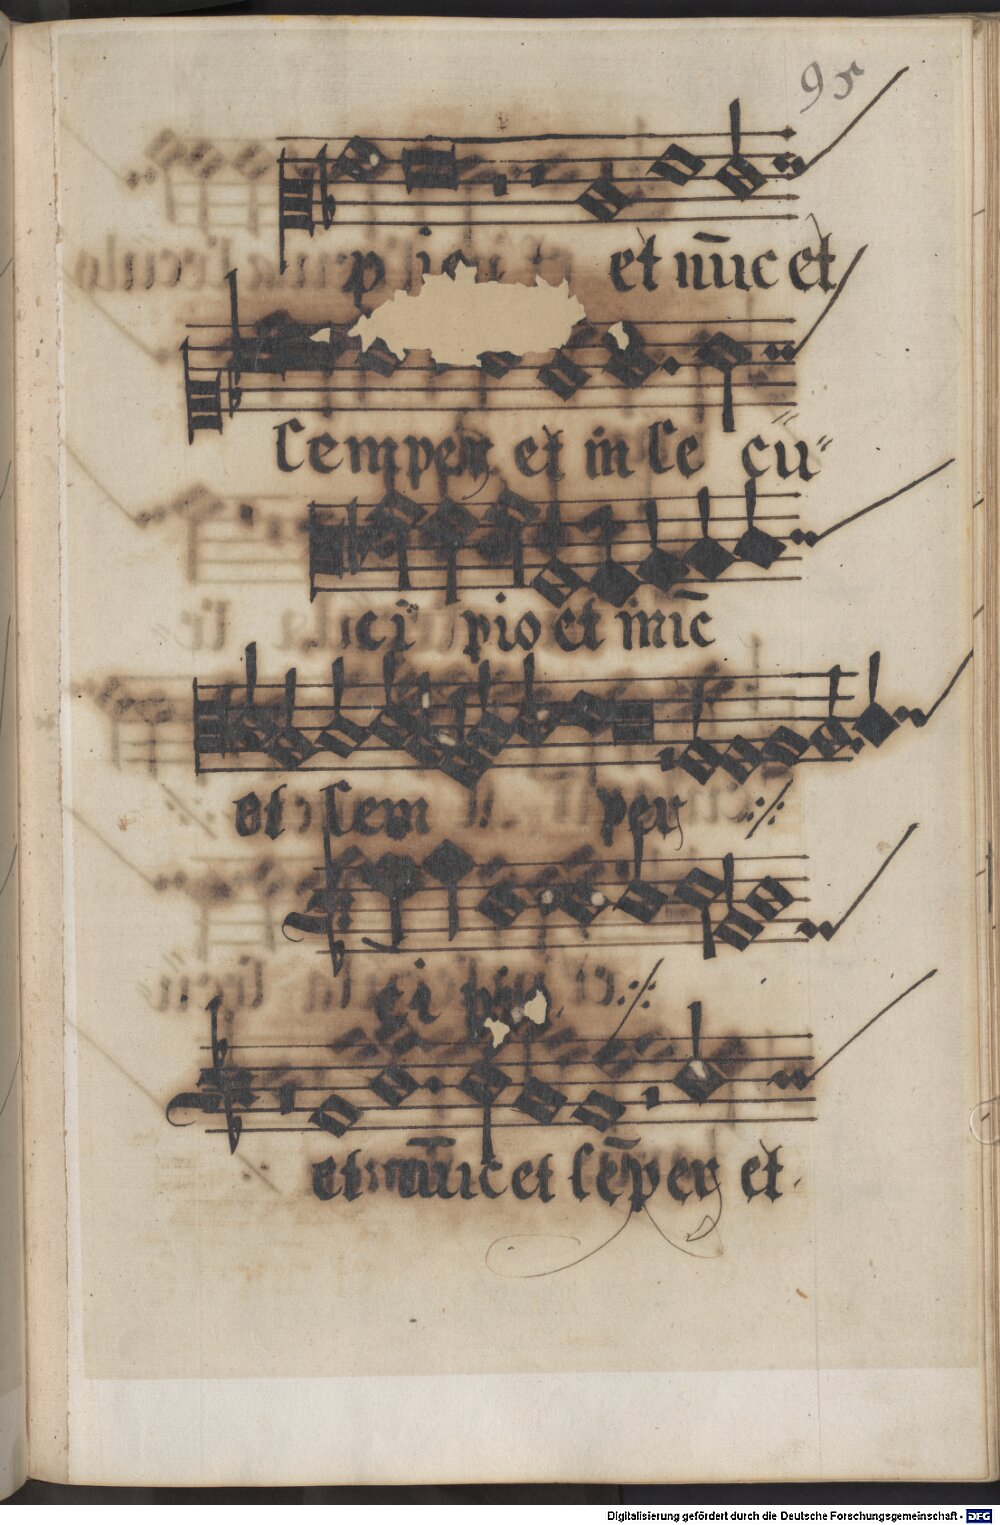 95
et nūc et
semper et in se cu
ci pio et nūc
et sem per
ci pio
et nūc et sēper et
Digitalisierung gefördert durch die Deutsche Forschungsgemeinschaft - DFG